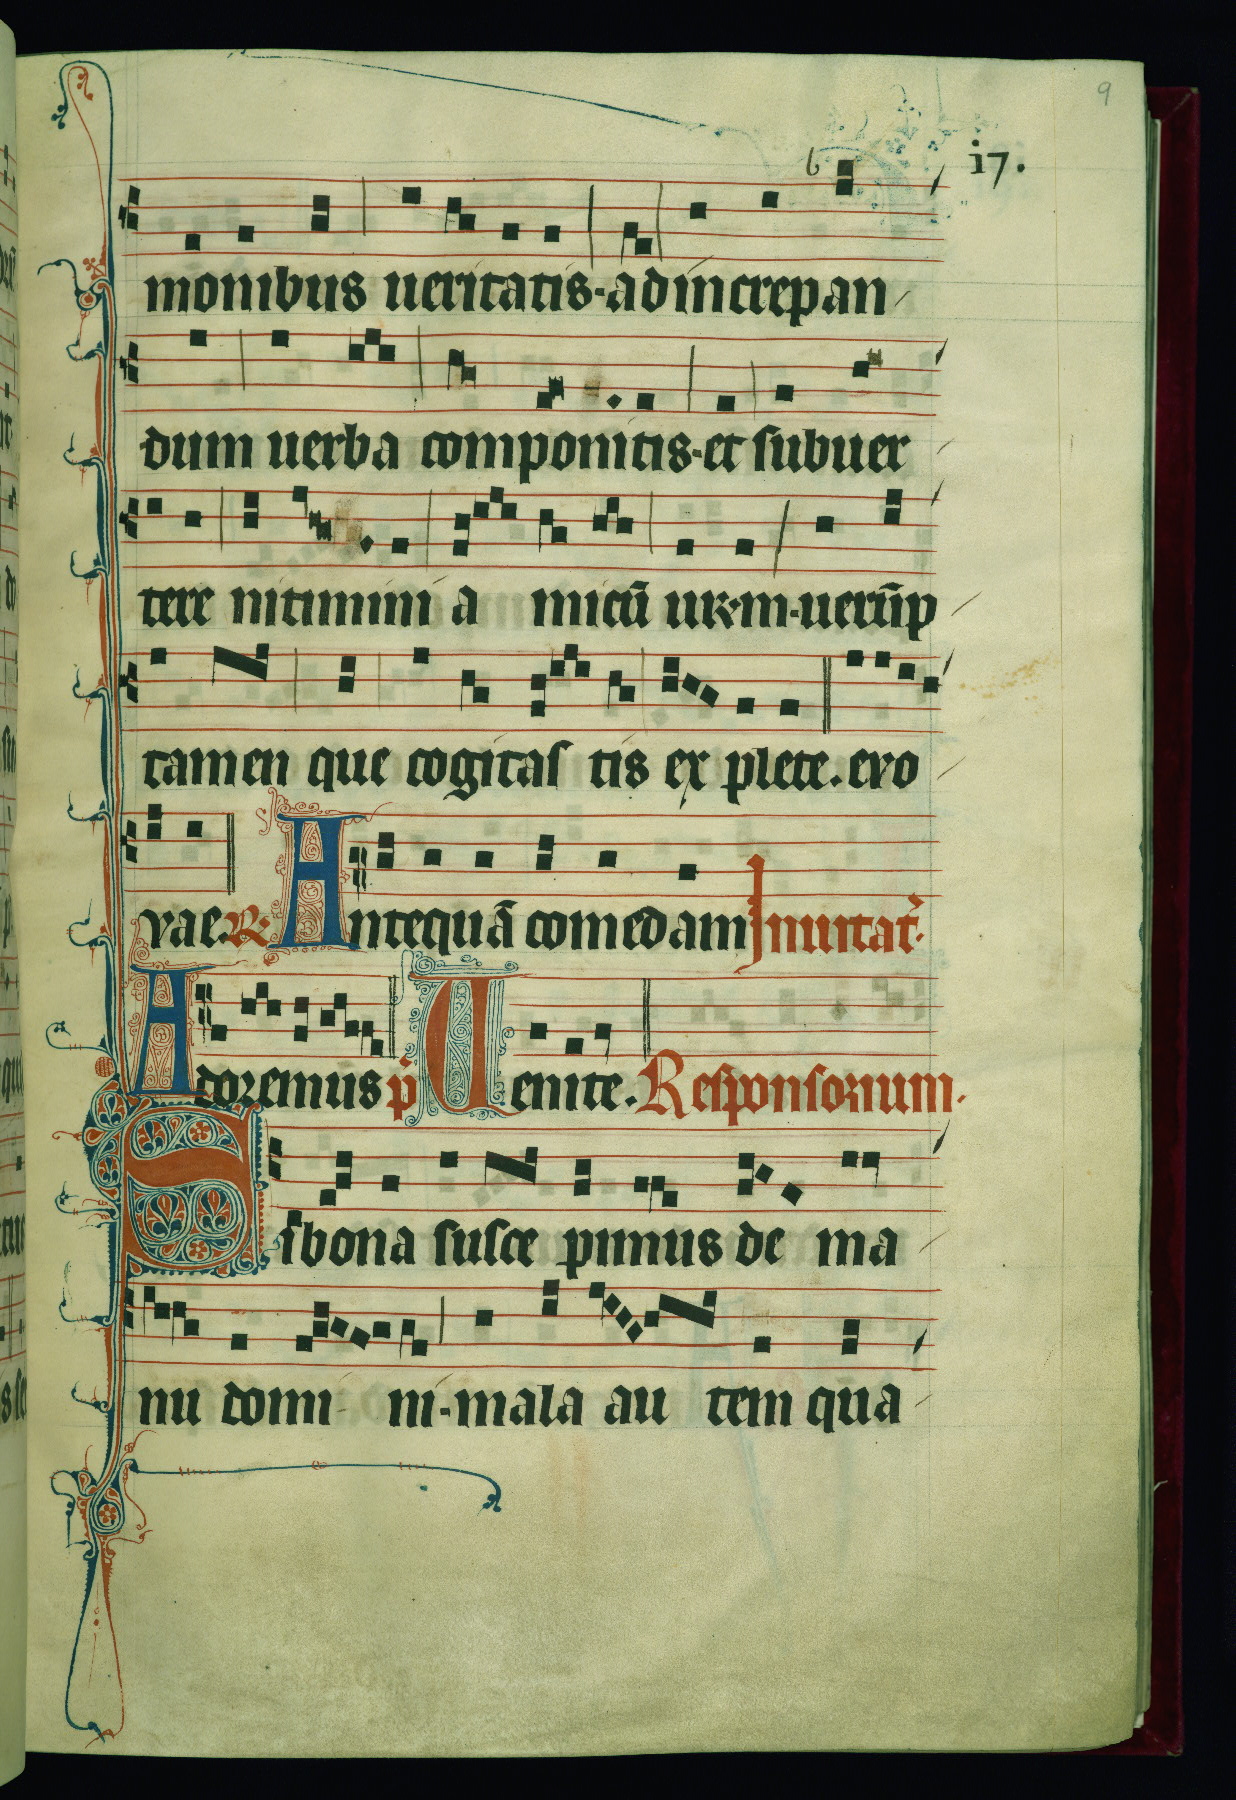 9
b
i7.
monibus ueritatis·adincrepan
dum uerba componitis·et subuer
tere nitimini a micū ur̄m·uerūp
tamen que cogitas tis ex plete. evo
vae. R̷ Antequā comedam Inuitat̄·
Adoremus p̄ Venite. Responsorium.
Sibona susce pimus de ma
nu domi ni·mala au tem qua